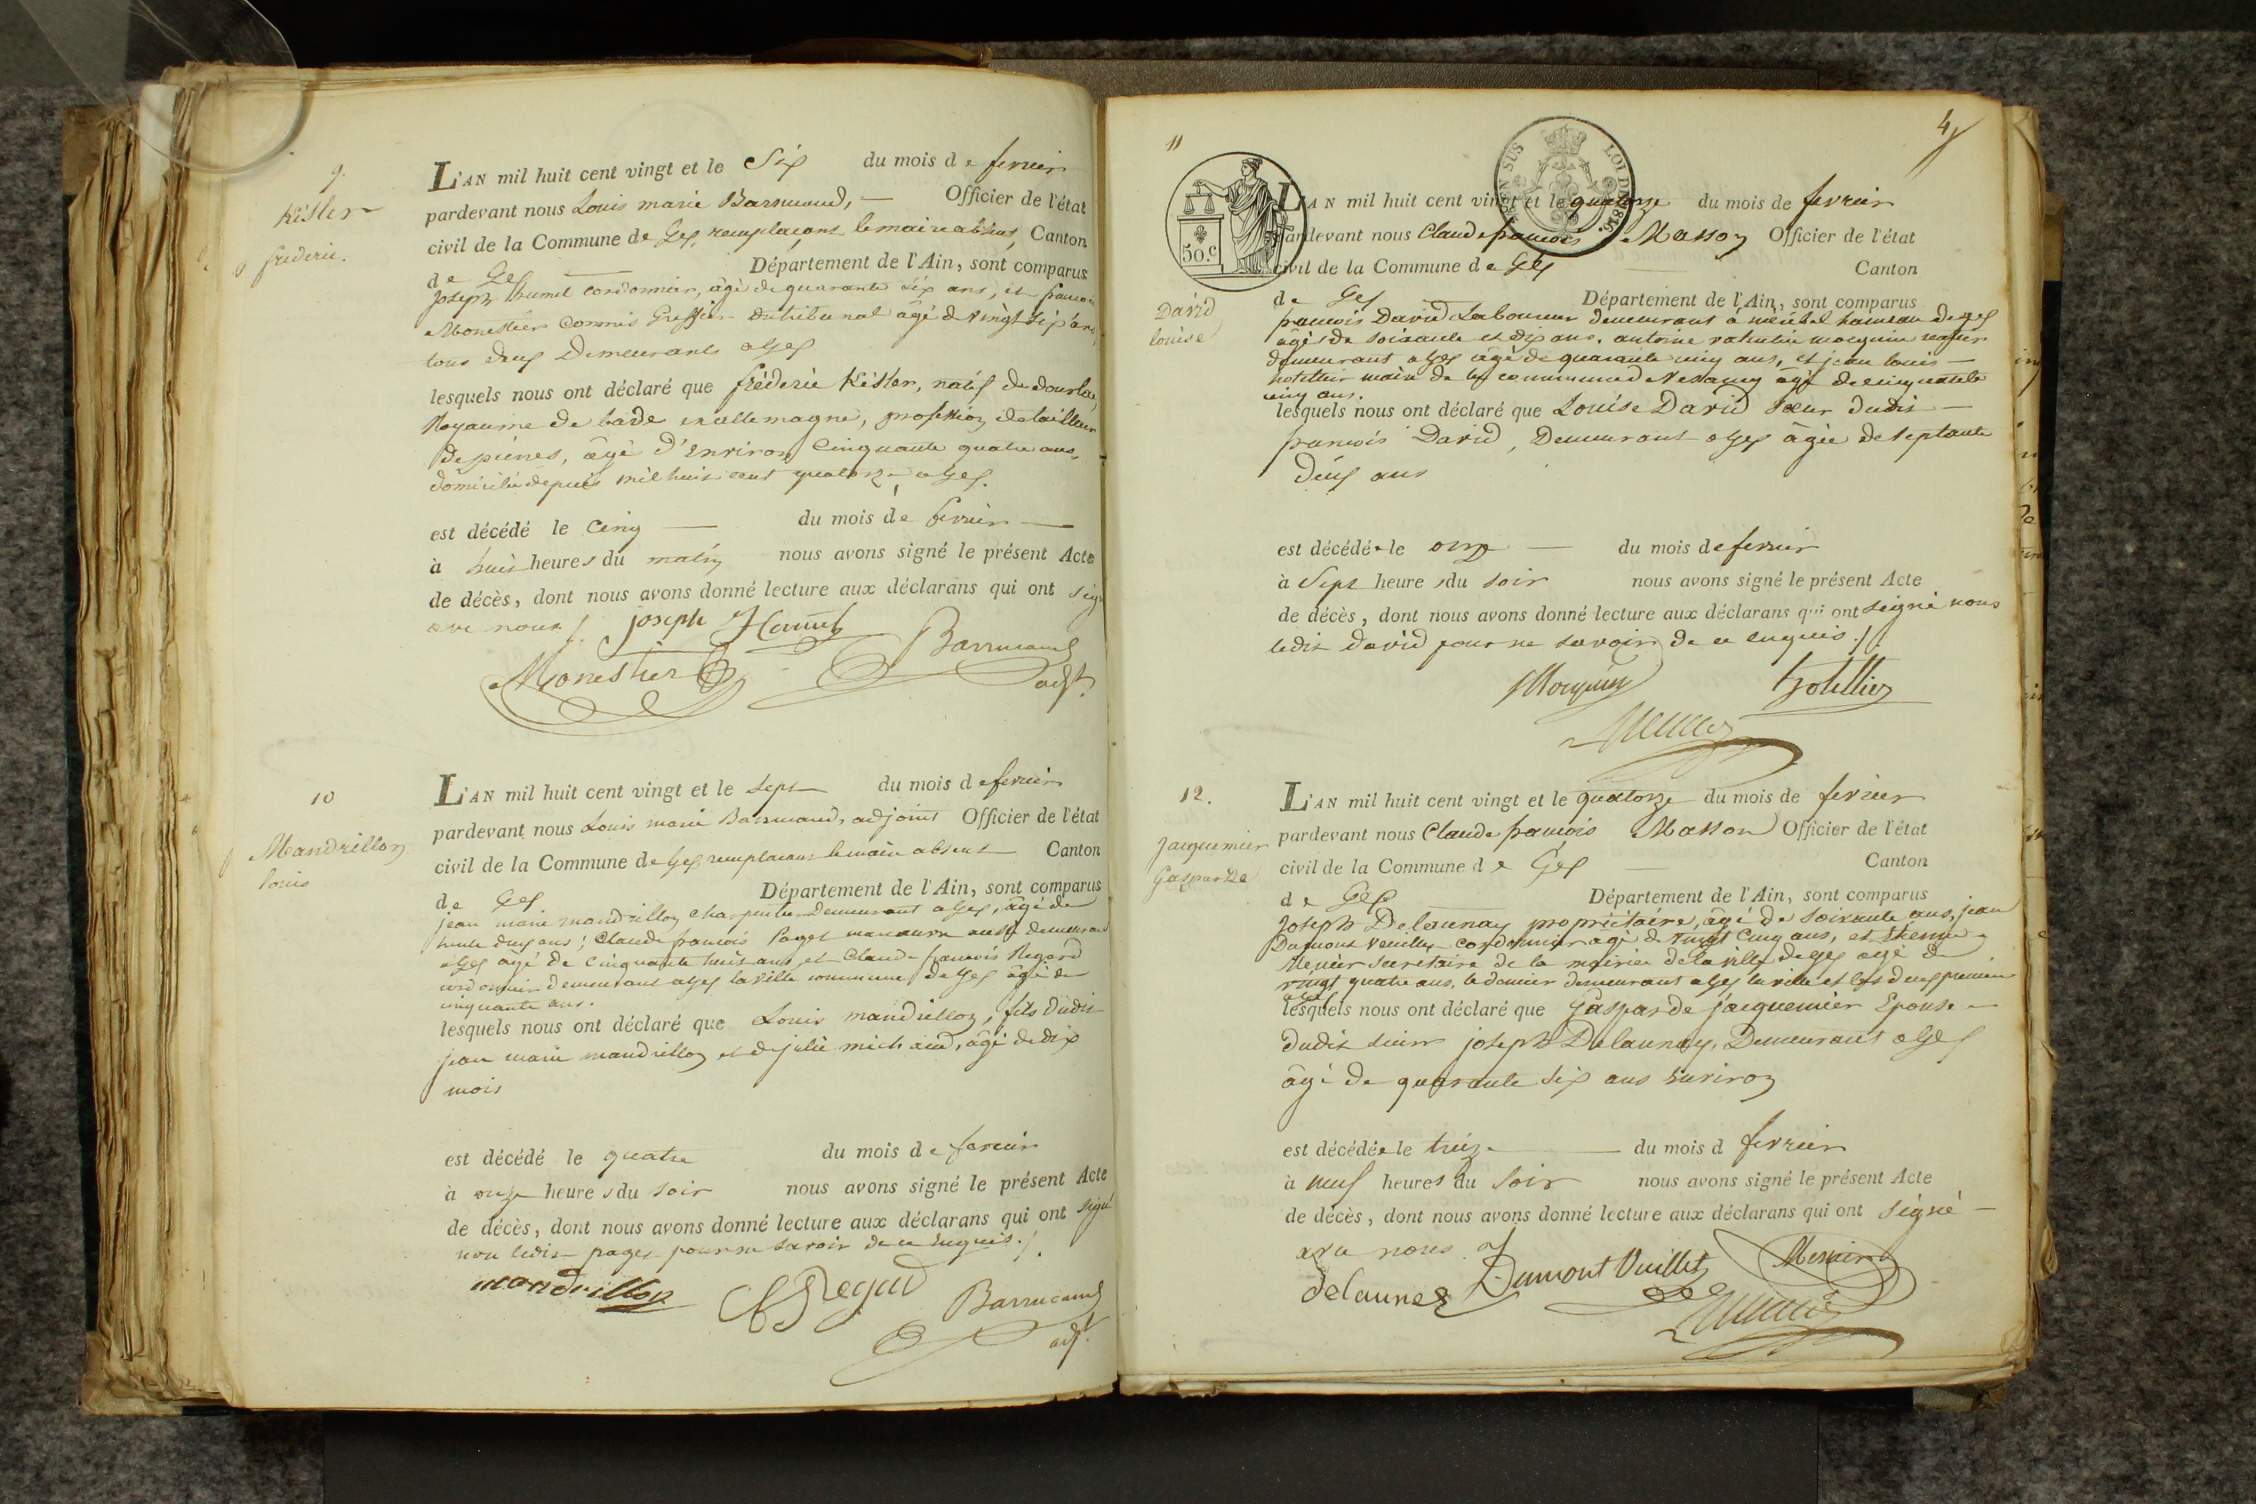 9.
Kisler
frédéric.
L'AN mil huit cent vingt et le Six du mois de fevrier
pardevant nous Louis marie Barrucand, — Officier de l'état
civil de la Commune de Gex, remplaçant le maire absent, Canton
de Gex Département de l'Ain, sont comparus
joseph cordonnier, âgé de quarante six ans, et francois
Monestier Commis Greffier du tribunal âgé de vingt sept ans,
tous deux Demeurants a Gex
lesquels nous ont déclaré que fréderic Kisler, natif de
Royaume de bade en allemagne, profession de tailleur
de pierres, âgé d'Environ Cinquante quatre ans,
domicilié depuis mil huit cent quatorze a Gex.
est décédé le Cinq — du mois de fevrier —
à huit heures du matin nous avons signé le présent Acte
de décès, dont nous avons donné lecture aux déclarans qui ont signé
avec nous ./. joseph
Monestier Barrucand
adjt.
10
Mandrillon
louis
L'AN mil huit cent vingt et le sept du mois de fevrier
pardevant nous Louis marie Barrucand, adjoint Officier de l'état
civil de la Commune de Gex remplacant le maire absent — Canton
de Gex Département de l'Ain, sont comparus
jean marie mandrillon charpentier Demeurant a Gex, âgé de
trente deux ans; Claude francois Paget manœuvre aussi demeurant
a Gex âgé de Cinquante huit ans, et Claude francois Regard
cordonnier demeurant a Gex la ville commune de Gex âgé de
cinquante ans.
lesquels nous ont déclaré que Louis mandrillon, fils dudit
jean marie mandrillon et de julie michaud, âgé de dix
mois
est décédé le quatre du mois de fevrier
à onze heures du soir nous avons signé le présent Acte
de décès, dont nous avons donné lecture aux déclarans qui ont signé
non ledit paget pour ne savoir de ce Enquis ./.
mandrillon Regard Barrucand
adjt.
11
4
50.c
LOI DE 1816.
David
louise
L'AN mil huit cent vingt et le quatorze du mois de fevrier
pardevant nous Claude francois Masson Officier de l'état
civil de la Commune de Gex Canton
de Gex Département de l'Ain, sont comparus
francois David Laboureur demeurant à hameau de gex
âgé de soixante et dix ans, antoine
demeurant a Gex âgé de quarante cinq ans, et jean louis —
maire de la commune de âgé de cinquante
cinq ans.
lesquels nous ont déclaré que Louise David sœur dudit —
francois David, Demeurant a Gex âgée de septante
deux ans
est décédée le onze — du mois de fevrier
à Sept heures du soir nous avons signé le présent Acte
de décès, dont nous avons donné lecture aux déclarans qui ont signé nous
ledit david pour ne savoir de ce enquis ./.
12.
jacquemier
Gasparde
L'AN mil huit cent vingt et le quatorze du mois de fevrier
pardevant nous Claude francois Masson Officier de l'état
civil de la Commune de Gex — Canton
de Gex Département de l'Ain, sont comparus
Joseph Delaunay propriétaire, âgé de soixante ans, jean
Dumont Vuillet cordonnier agé de vingt Cinq ans, et Etienne
secrétaire de la mairie de la ville de gex agé de
vingt quatre ans, le dernier demeurant a Gex la ville et les deux premiers
a Gex
lesquels nous ont déclaré que Gasparde jacquemier Epouse —
dudit sieur joseph Delaunay, Demeurant a Gex
âgé de quarante six ans Environ
est décédée le treize — du mois d fevrier
à neuf heures du soir nous avons signé le présent Acte
de décès, dont nous avons donné lecture aux déclarans qui ont signé —
avec nous ./.
delaunex Dumont Vuillet